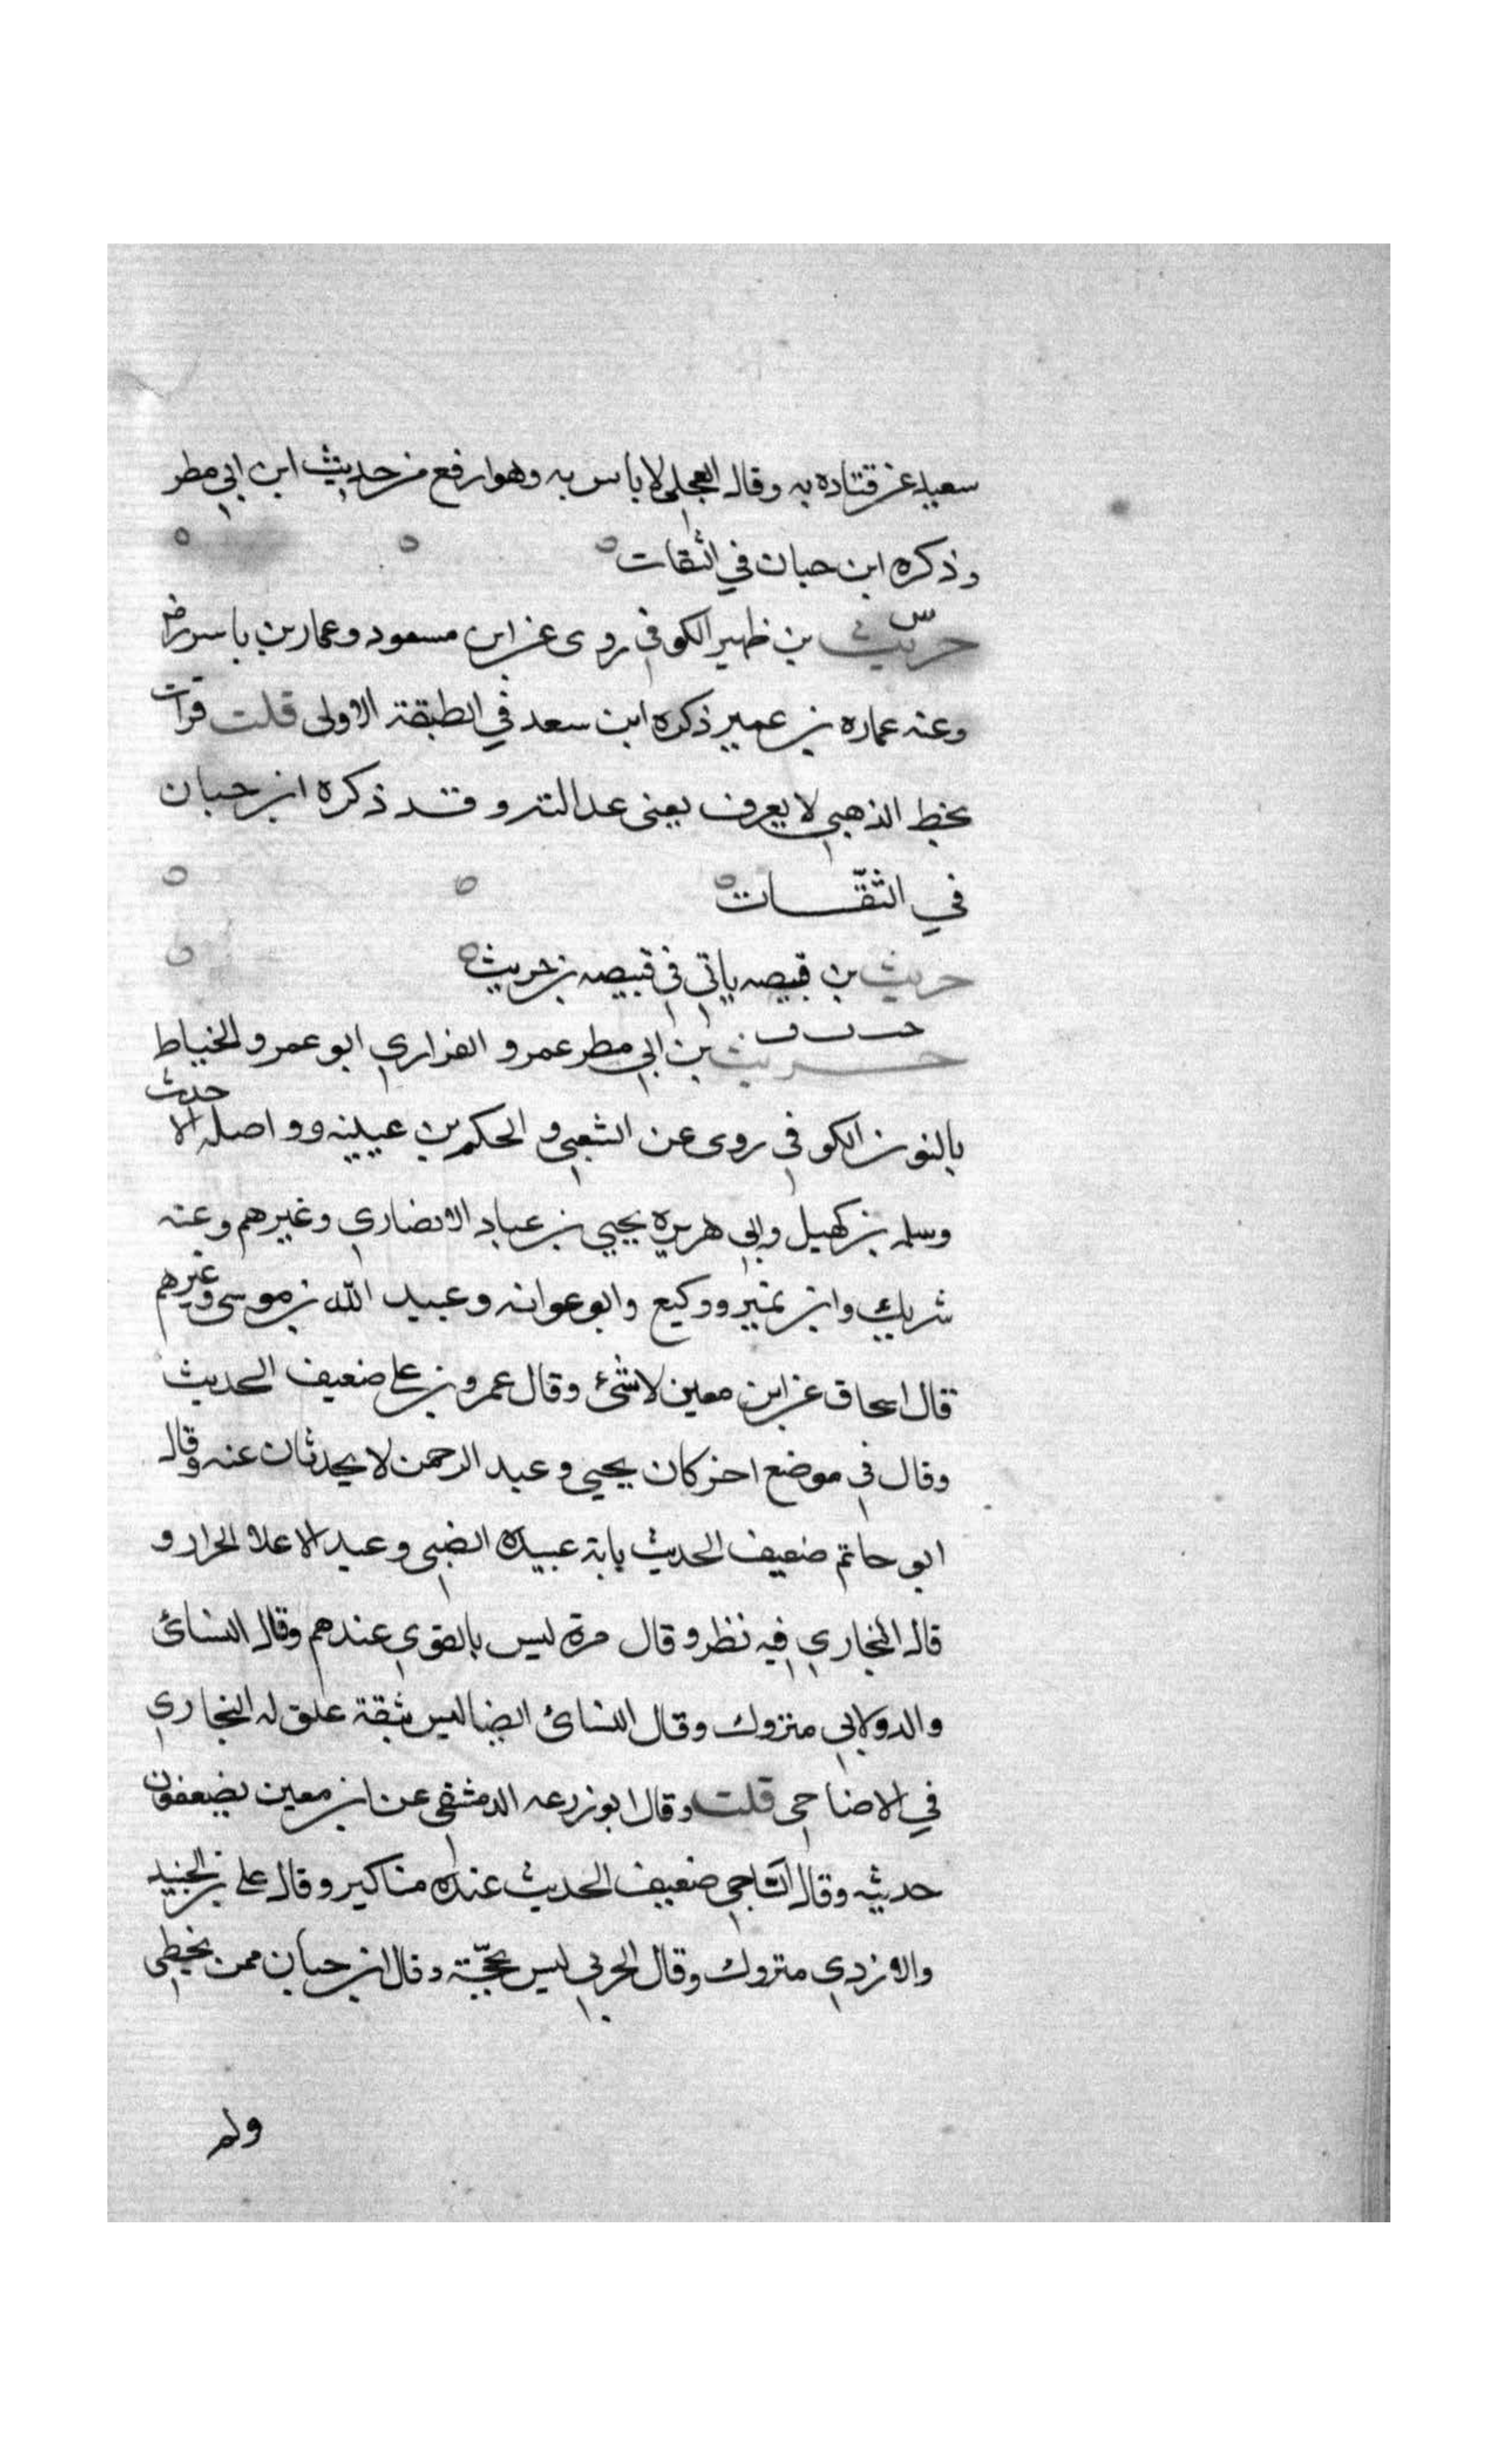 سعيد عن قتاده به وقال العجلي لا باس به وهو ارفع من حديث ابن ابي مطر
وذكره ابن حبان في الثقات
حريث بن ظهير الكوفي روى عن ابن مسعود وعمار بن ياسر
وعنه عماره بن عمير ذكره ابن سعد في الطبقة الاولى قلت قرات
بخط الذهبي لا يعرف يعني عدالته وقد ذكره ابن حبان
في الثقات
حريث بن قبيصه ياتي في قبيصه بن حريث
حريث بن ابي مطر عمرو الفزاري ابو عمرو الخياط
بالنون الكوفي روى عن الشعبي والحكم بن عيينه وواصل الا حدث
وسلمه بن كهيل وابي هريره يحيى بن عباد الانصاري وغيرهم وعنه
شريك وابن نمير ووكيع وابو عوانه وعبيد الله بن موسى وغيرهم
قال اسحاق عن ابن معين لا شئ وقال عمرو بن علي ضعيف الحديث
وقال في موضع اخر كان يحيى وعبد الرحمن لا يحدثان عنه وقال
ابو حاتم ضعيف الحديث بابة عبيده الضبي وعبد الاعلا الجرار و
قال البخاري فيه نظر وقال مرة ليس بالقوي عندهم وقال النسائ
والدولابي متروك وقال النسائ ايضا ليس بثقة علق له البخاري
في الاضاحي قلت وقال ابو زرعه الدمشقي عن ابن معين يضعفون
حديثه وقال الساجي ضعيف الحديث عنده مناكير وقال علي بن الجنيد
والازدي متروك وقال الحربي ليس بحجّة وقال ابن حبان ممن يخطي
ولم